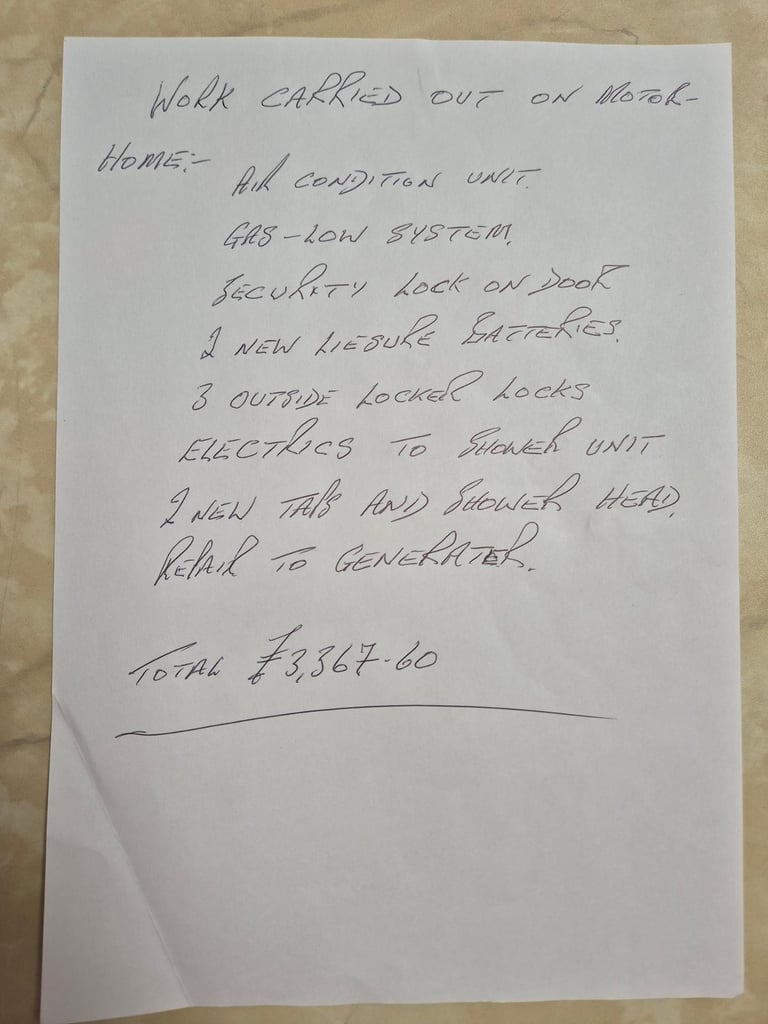 WORK CARRIED OUT ON MOTOR-
HOME:-
AIR CONDITION UNIT.
GAS-LOW SYSTEM.
SECURITY LOCK ON DOOR
2 NEW LIESURE BATTERIES.
3 OUTSIDE LOCKER LOCKS
ELECTRICS TO SHOWER UNIT
2 NEW TAPS AND SHOWER HEAD.
REPAIR TO GENERATER.
TOTAL £3,367-60